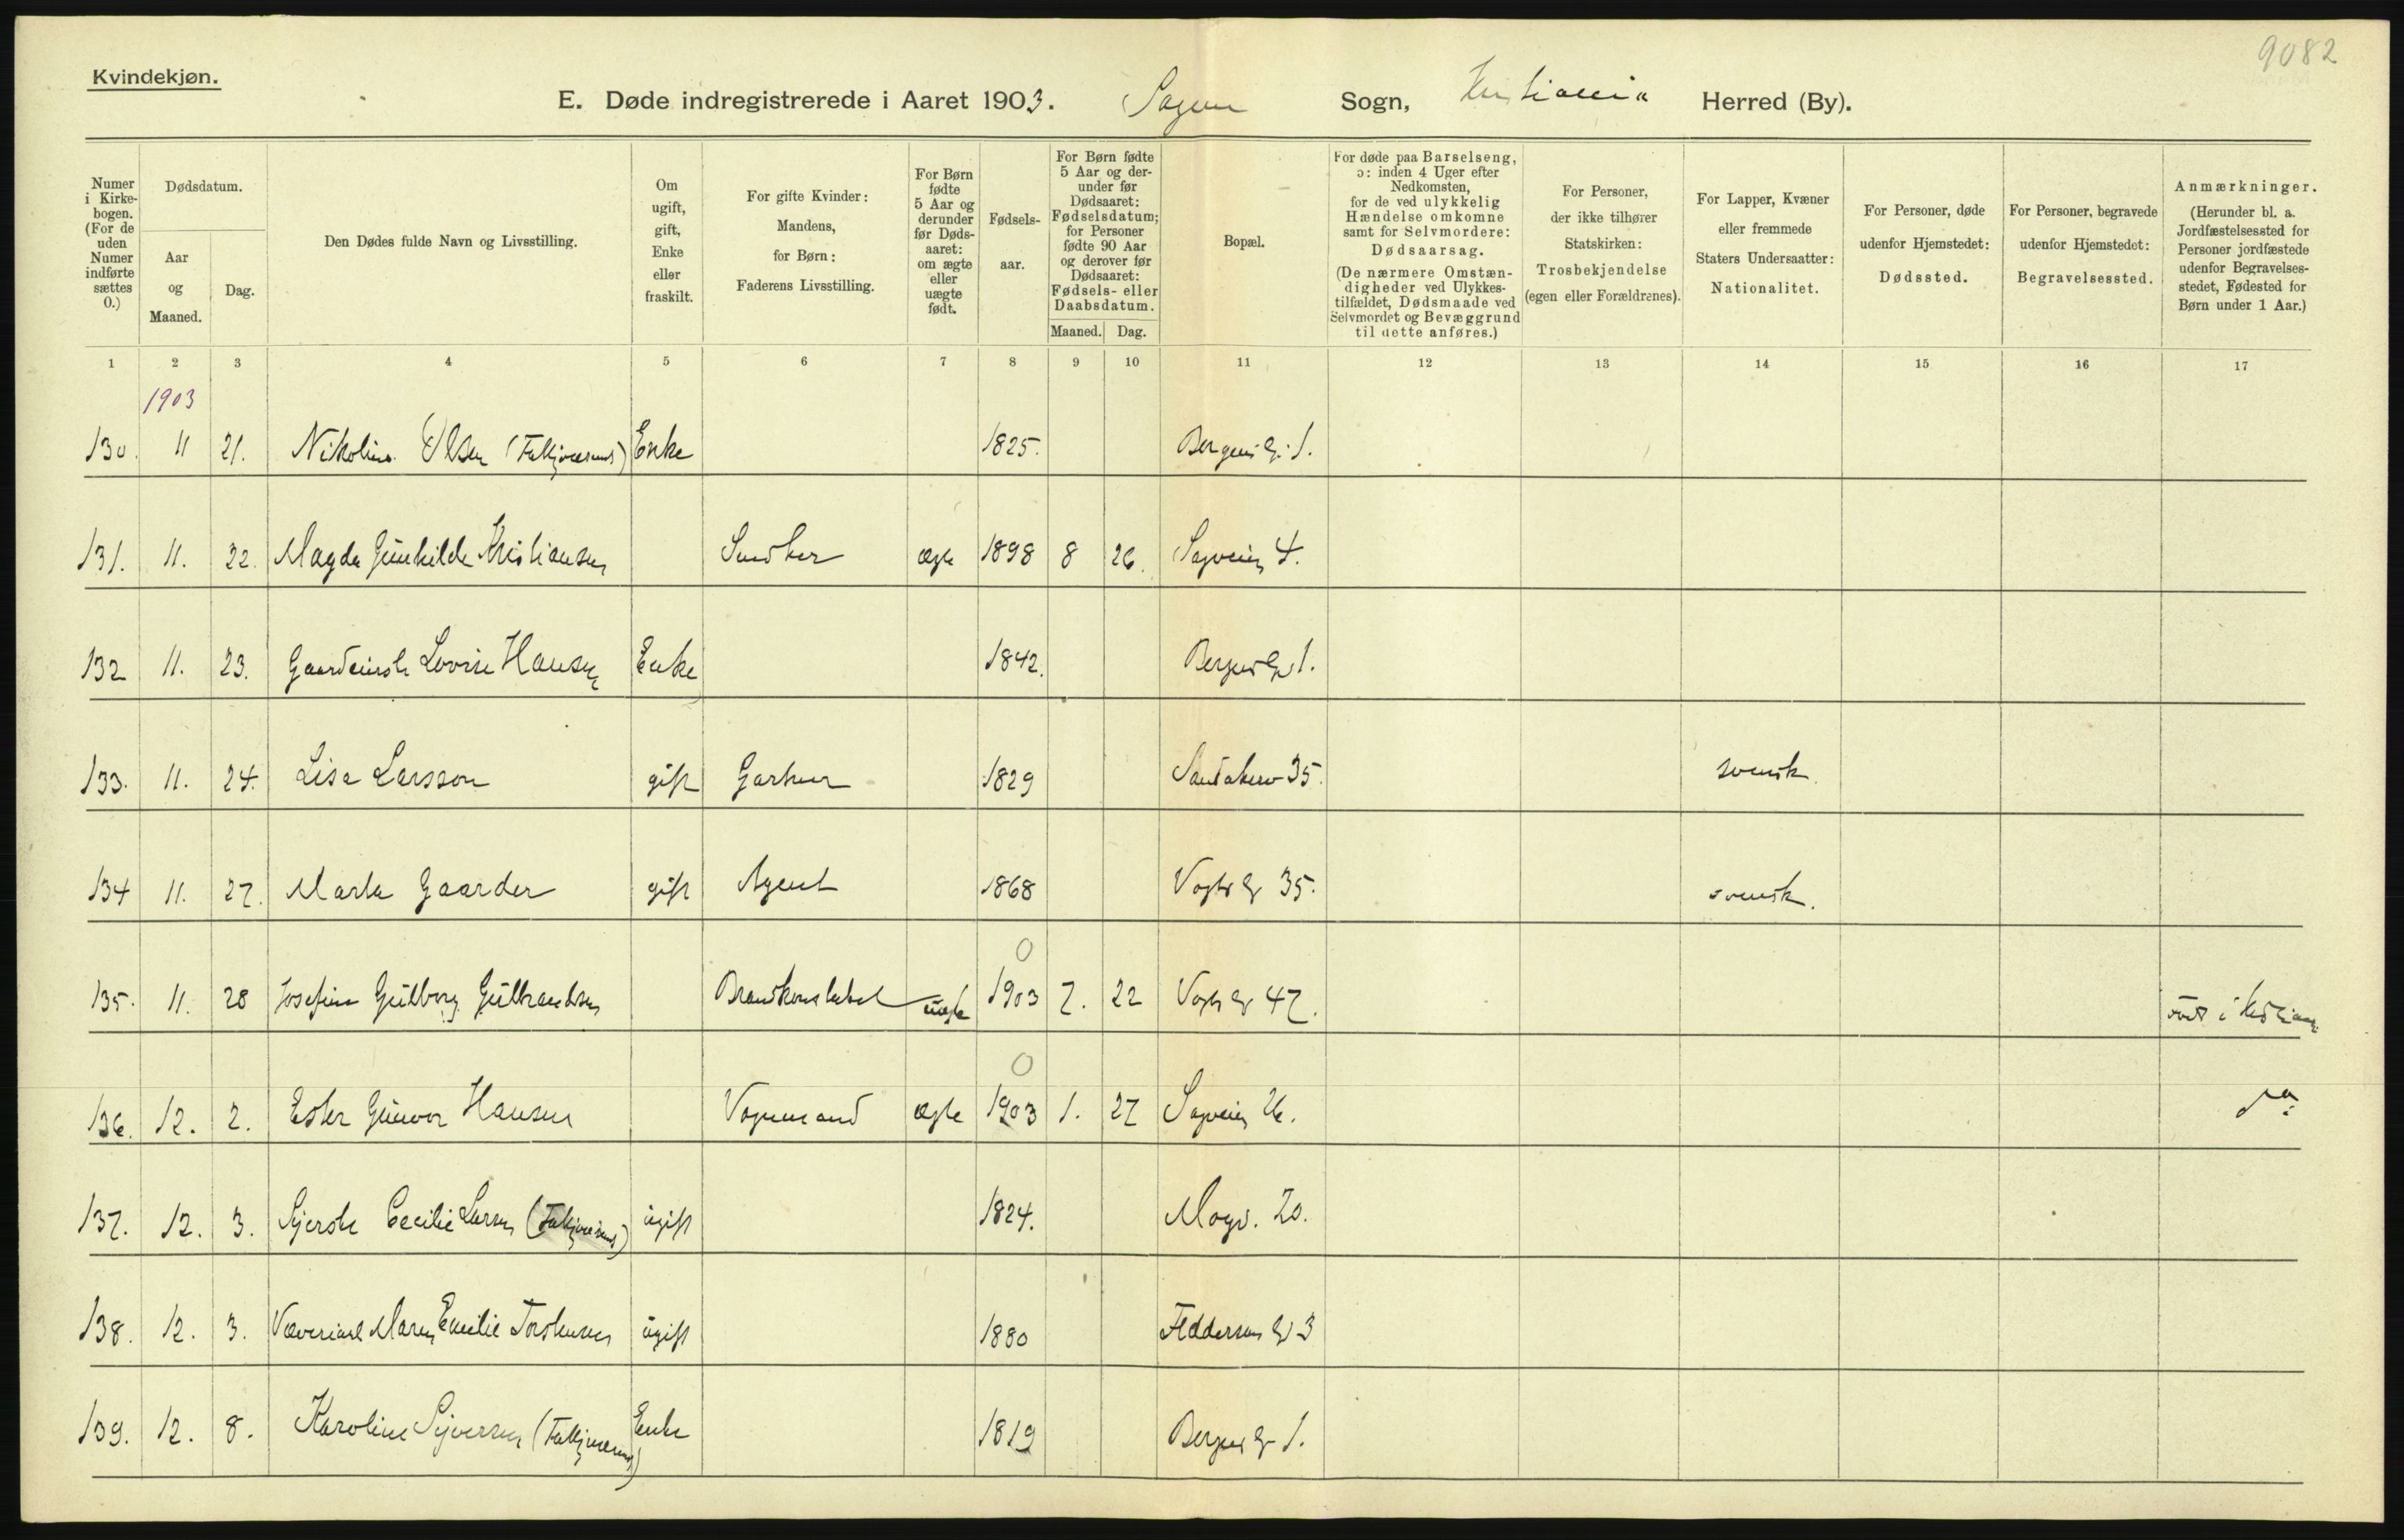 9082
Kvindekjøn.
E. Døde indregistrerede i Aaret 1903. Sagene Sogn, Kristiania Herred (By).
Numer i Kirkebogen. (For de uden Numer indførte sættes 0.)
Dødsdatum.
Aar og Maaned.
Dag.
Den Dødes fulde Navn og Livsstilling.
Om ugift, gift, Enke eller fraskilt.
For gifte Kvinder: Mandens, for Børn: Faderens Livsstilling.
For Børn fødte 5 Aar og derunder før Dødsaaret: om ægte eller uægte født.
Fødselsaar.
For Børn fødte 5 Aar og derunder før Dødsaaret: Fødselsdatum; for Personer fødte 90 Aar og derover før Dødsaaret: Fødsels- eller Daabsdatum.
Maaned. Dag.
Bopæl.
For døde paa Barselseng, ɔ: inden 4 Uger efter Nedkomsten, for de ved ulykkelig Hændelse omkomne samt for Selvmordere: Dødsaarsag. (De nærmere Omstændigheder ved Ulykkestilfældet, Dødsmaade ved Selvmordet og Bevæggrund til dette anføres.)
For Personer, der ikke tilhører Statskirken: Trosbekjendelse (egen eller Forældrenes).
For Lapper, Kvæner eller fremmede Staters Undersaatter: Nationalitet.
For Personer, døde udenfor Hjemstedet: Dødssted.
For Personer, begravede udenfor Hjemstedet: Begravelsessted.
Anmærkninger. (Herunder bl. a. Jordfæstelsessted for Personer jordfæstede udenfor Begravelsesstedet, Fødested for Børn under 1 Aar.)
1 2 3 4 5 6 7 8 9 10 11 12 13 14 15 16 17
1903
130. 11 21. Nikoline Olsen Enke 1825. Bergens G. 1.
131. 11. 22. Magda Gunhilde Kristiansen ægte 1898 8 26. Sagveien 4.
132 11. 23. Lovise Hansen Enke 1842. Bergens G. 1.
133. 11. 24. Lise Larsson gift Gartner 1829 Sandakerv 35. svensk.
134 11. 27. Marta Gaarder gift Agent 1868 Vogts G 35. svensk.
0
135. 11. 28 Josefine Gulborg Gulbrandsen Brandkonstabel uægte 1903 7. 22 Vogts G 47. født i Kristiania
0
136. 12. 2. Ester Gunvor Hansen Vognmand ægte 1903 1. 27 Sagveien 26. do
137. 12. 3. Syerske Cecilie Larsen ugift 1824. 20.
138. 12. 3. Væverske Maren Emilie Torstensen ugift 1880 Feddersens G 3
139. 12. 8. Karoline Syversen Enke 1819 Bergens G 1.